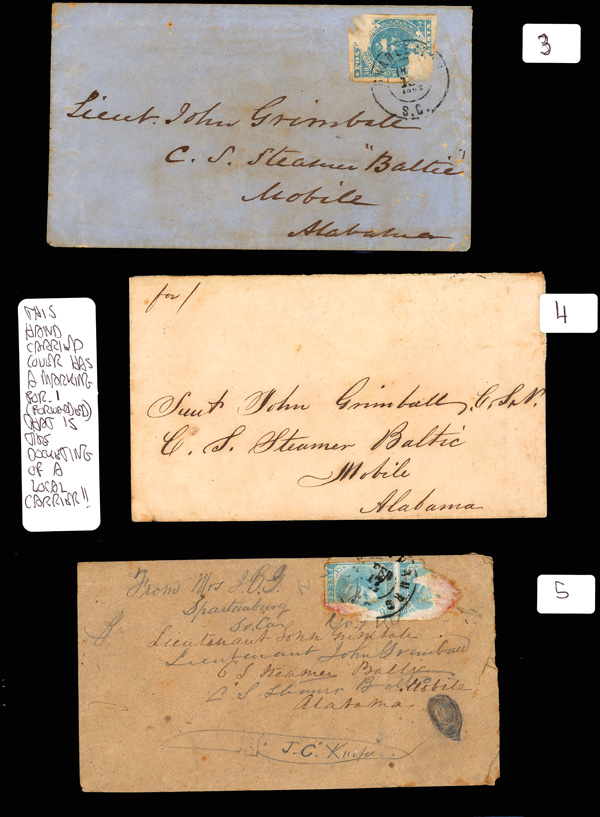 3
S.C.
Lieut. John Grimball
C. S. Steamer "Baltic"
Mobile
Alabama
4
for/
Lieut John Grimball, C.S.N.
C. S. Steamer Baltic
Mobile
Alabama
THIS
HAND
CARRIED
COVER HAS
A MARKING
FOR. /
(FORWARDED)
THAT IS
THE
DOCKETING
OF A
LOCAL
CARRIER!!
5
From Mrs
Spartanburg
So Car
Lieutenant John Grimball
Lieutenant John Grimball
C S Steamer Baltic
C S Steamer Mobile
Alabama
J.C.